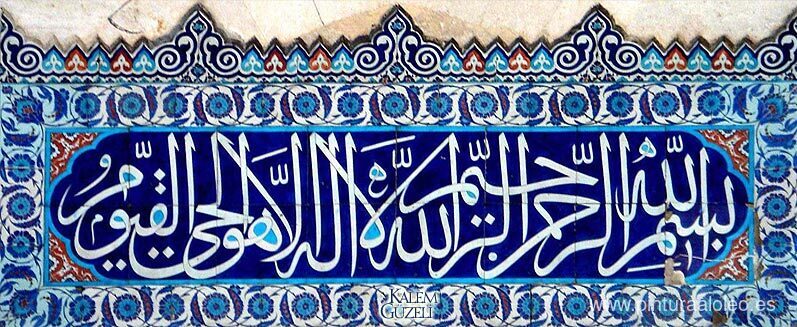 بسم الله الرحمن الرحيم الله لا اله الا هو الحي القيوم
KALEM
GÜZELİ
www.pinturaaloleo.es